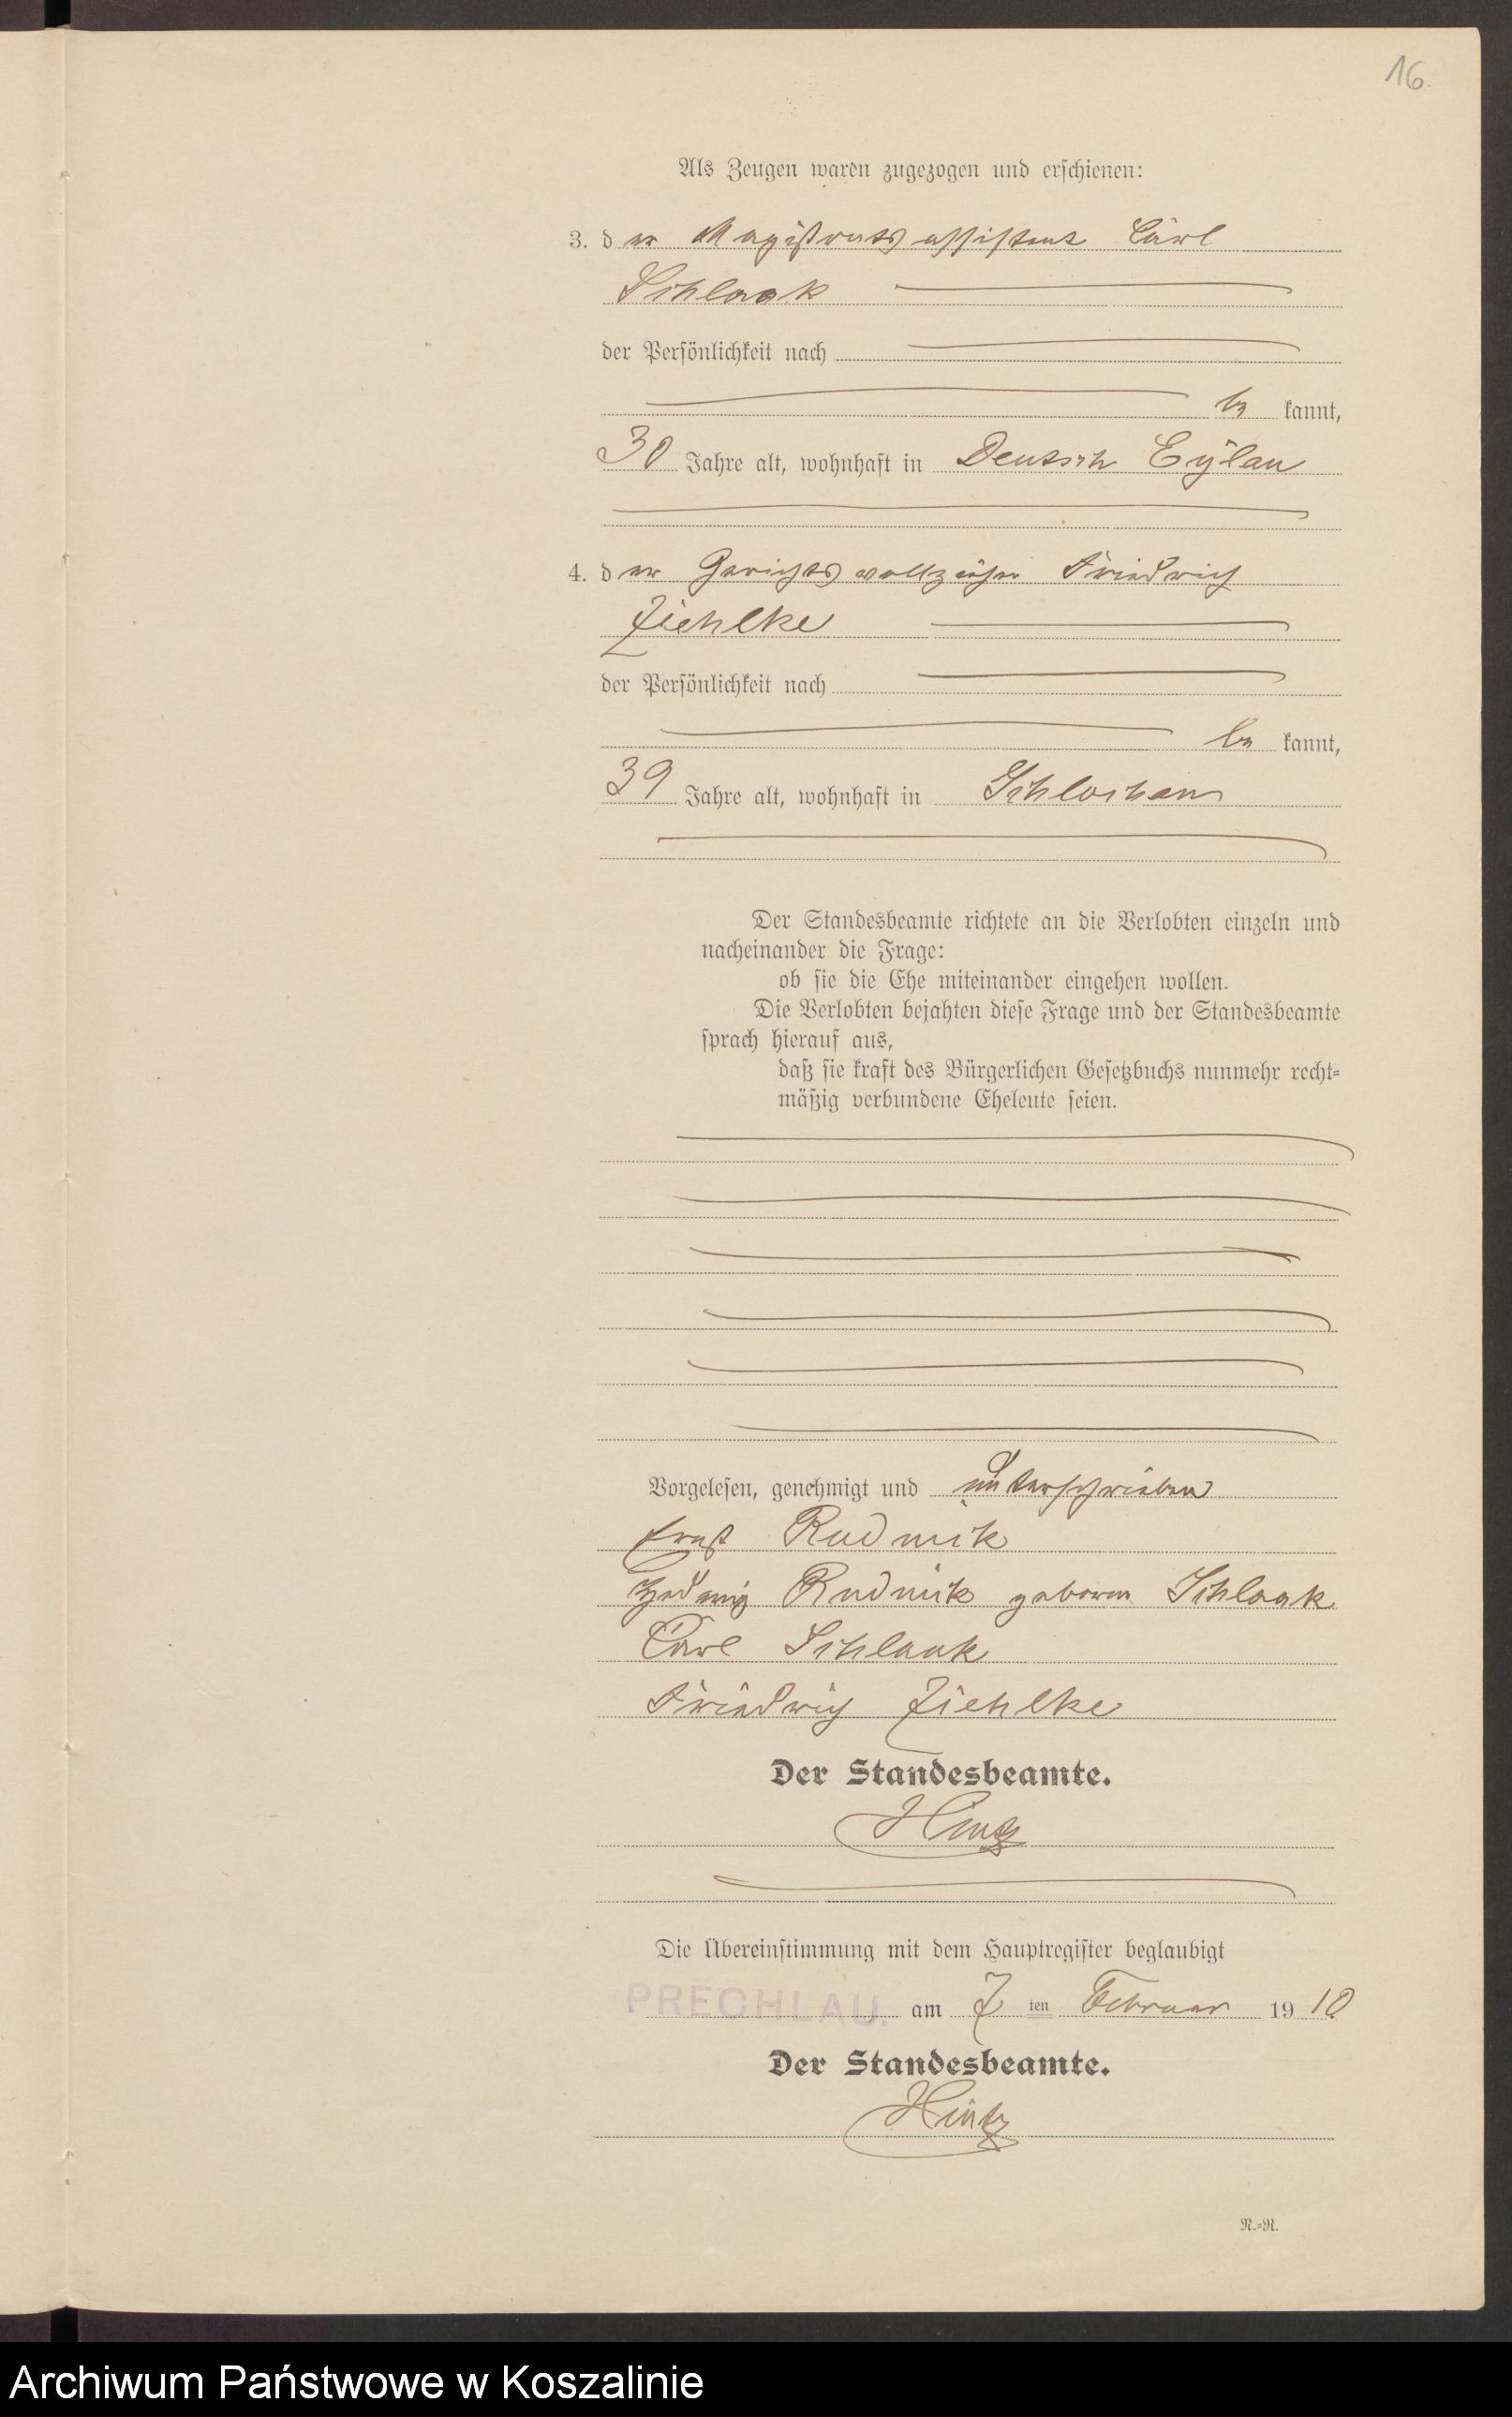 16.
Als Zeugen waren zugezogen und erschienen:
3. der Magistratsassistent Carl
Schlaak
der Persönlichkeit nach
be kannt,
30 Jahre alt, wohnhaft in Deutsch Eylau
4. der Gerichtsvollzieher Friedrich
Ziehlke
der Persönlichkeit nach
be kannt,
39 Jahre alt, wohnhaft in Schlochau
Der Standesbeamte richtete an die Verlobten einzeln und
nacheinander die Frage:
ob sie die Ehe miteinander eingehen wollen.
Die Verlobten bejahten diese Frage und der Standesbeamte
sprach hierauf aus,
daß sie kraft des Bürgerlichen Gesetzbuchs nunmehr recht-
mäßig verbundene Eheleute seien.
Vorgelesen, genehmigt und unterschrieben
Ernst Rudnik
Hedwig Rudnik geboren Schlaak
Carl Schlaak
Friedrich Ziehlke
Der Standesbeamte.
Hintz
Die Übereinstimmung mit dem Hauptregister beglaubigt
PRECHLAU. am 7 ten Februar 19 10
Der Standesbeamte.
Hintz
N.-R.
Archiwum Państwowe w Koszalinie